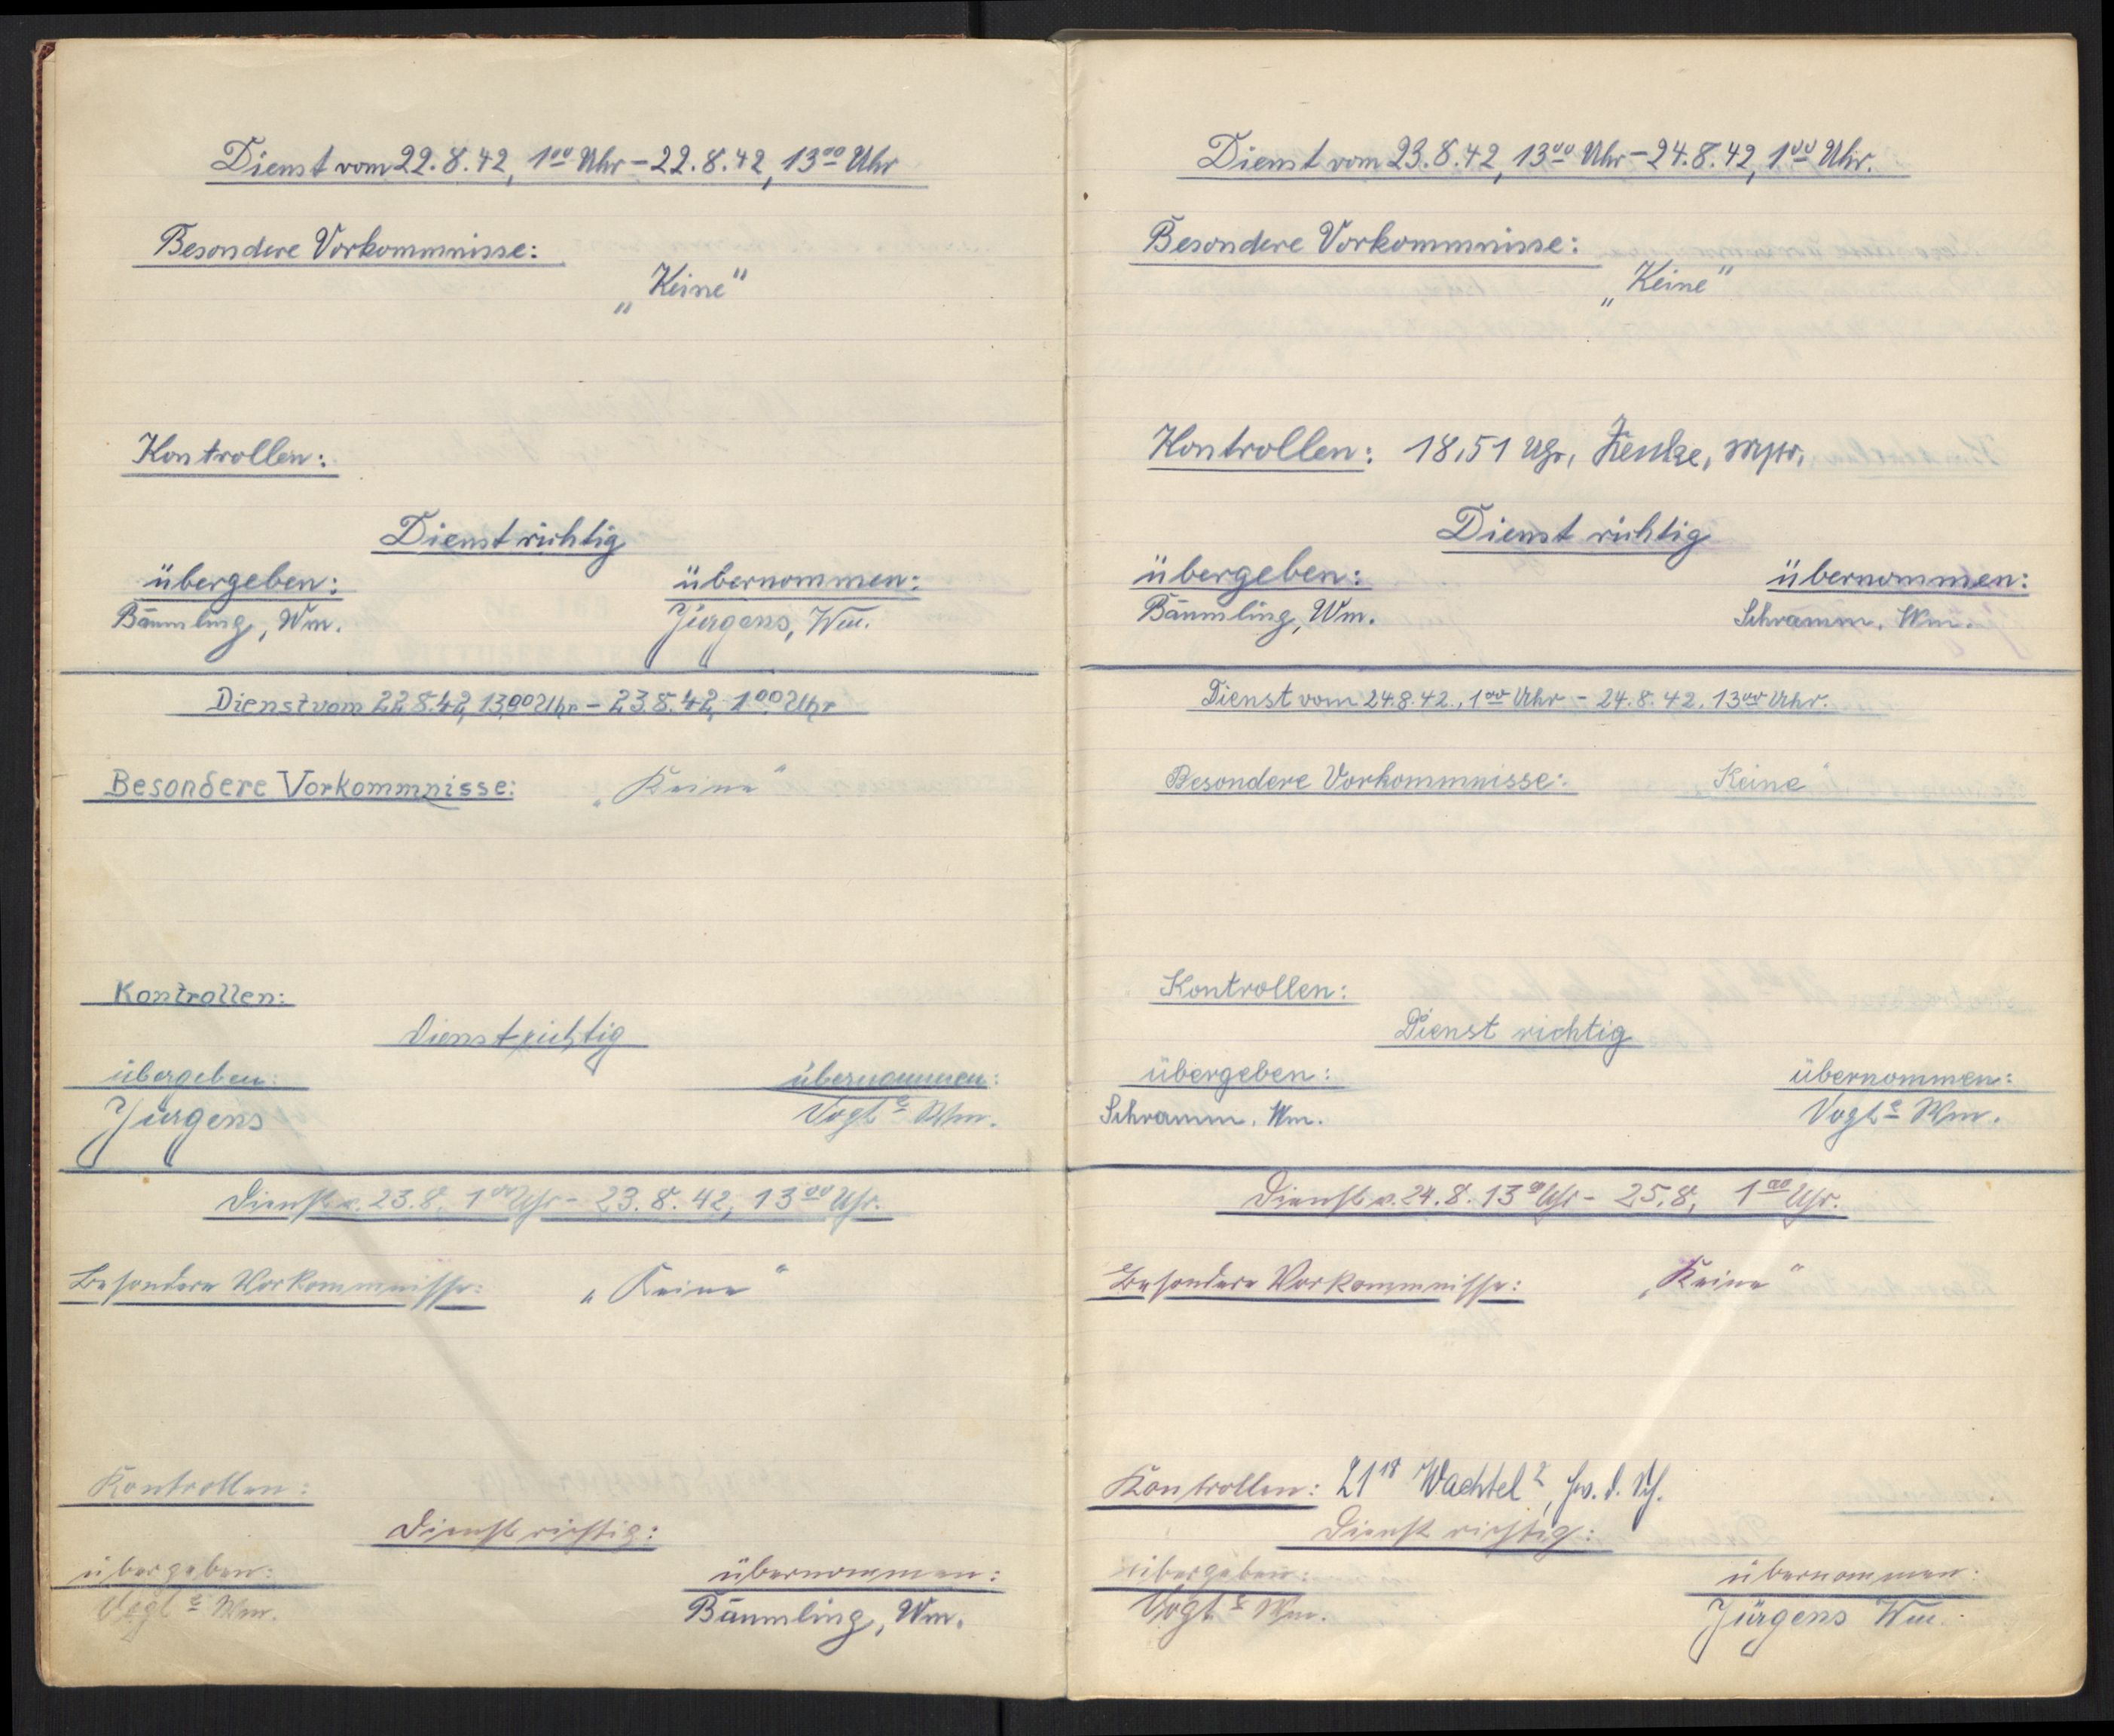 Dienst vom 22.8.42, 1⁰⁰ Uhr – 22.8.42, 13⁰⁰ Uhr
Besondere Vorkommnisse:
„Keine“
Kontrollen:
Dienst richtig
übergeben: übernommen:
Bäumling, Wm. Jürgens, Wm.
Dienst vom 22.8.42, 13⁰⁰ Uhr – 23.8.42, 1⁰⁰ Uhr
Besondere Vorkommnisse: „Keine“
Kontrollen:
Dienst richtig
übergeben: übernommen:
Jürgens Vogt Wm.
Dienst v. 23.8. 1⁰⁰ Uhr – 23.8.42, 13⁰⁰ Uhr.
Besondere Vorkommnisse: „Keine“
Kontrollen:
Dienst richtig:
übergeben: übernommen:
Vogt Wm. Bäumling, Wm.
Dienst vom 23.8.42, 13⁰⁰ Uhr – 24.8.42, 1⁰⁰ Uhr.
Besondere Vorkommnisse:
„Keine“
Kontrollen: 18,51 Uhr,
Dienst richtig
übergeben: übernommen:
Bäumling, Wm. Schramm, Wm.
Dienst vom 24.8.42., 1⁰⁰ Uhr – 24.8.42. 13⁰⁰ Uhr.
Besondere Vorkommnisse: „Keine“
Kontrollen:
Dienst richtig
übergeben: übernommen:
Schramm, Wm. Vogt Wm.
Dienst v. 24.8. 13⁰⁰ Uhr – 25.8. 1⁰⁰ Uhr.
Besondere Vorkommnisse: „Keine“
Kontrollen: 21¹⁸ Wachtel
Dienst richtig:
übergeben: übernommen:
Vogt Wm. Jürgens Wm.